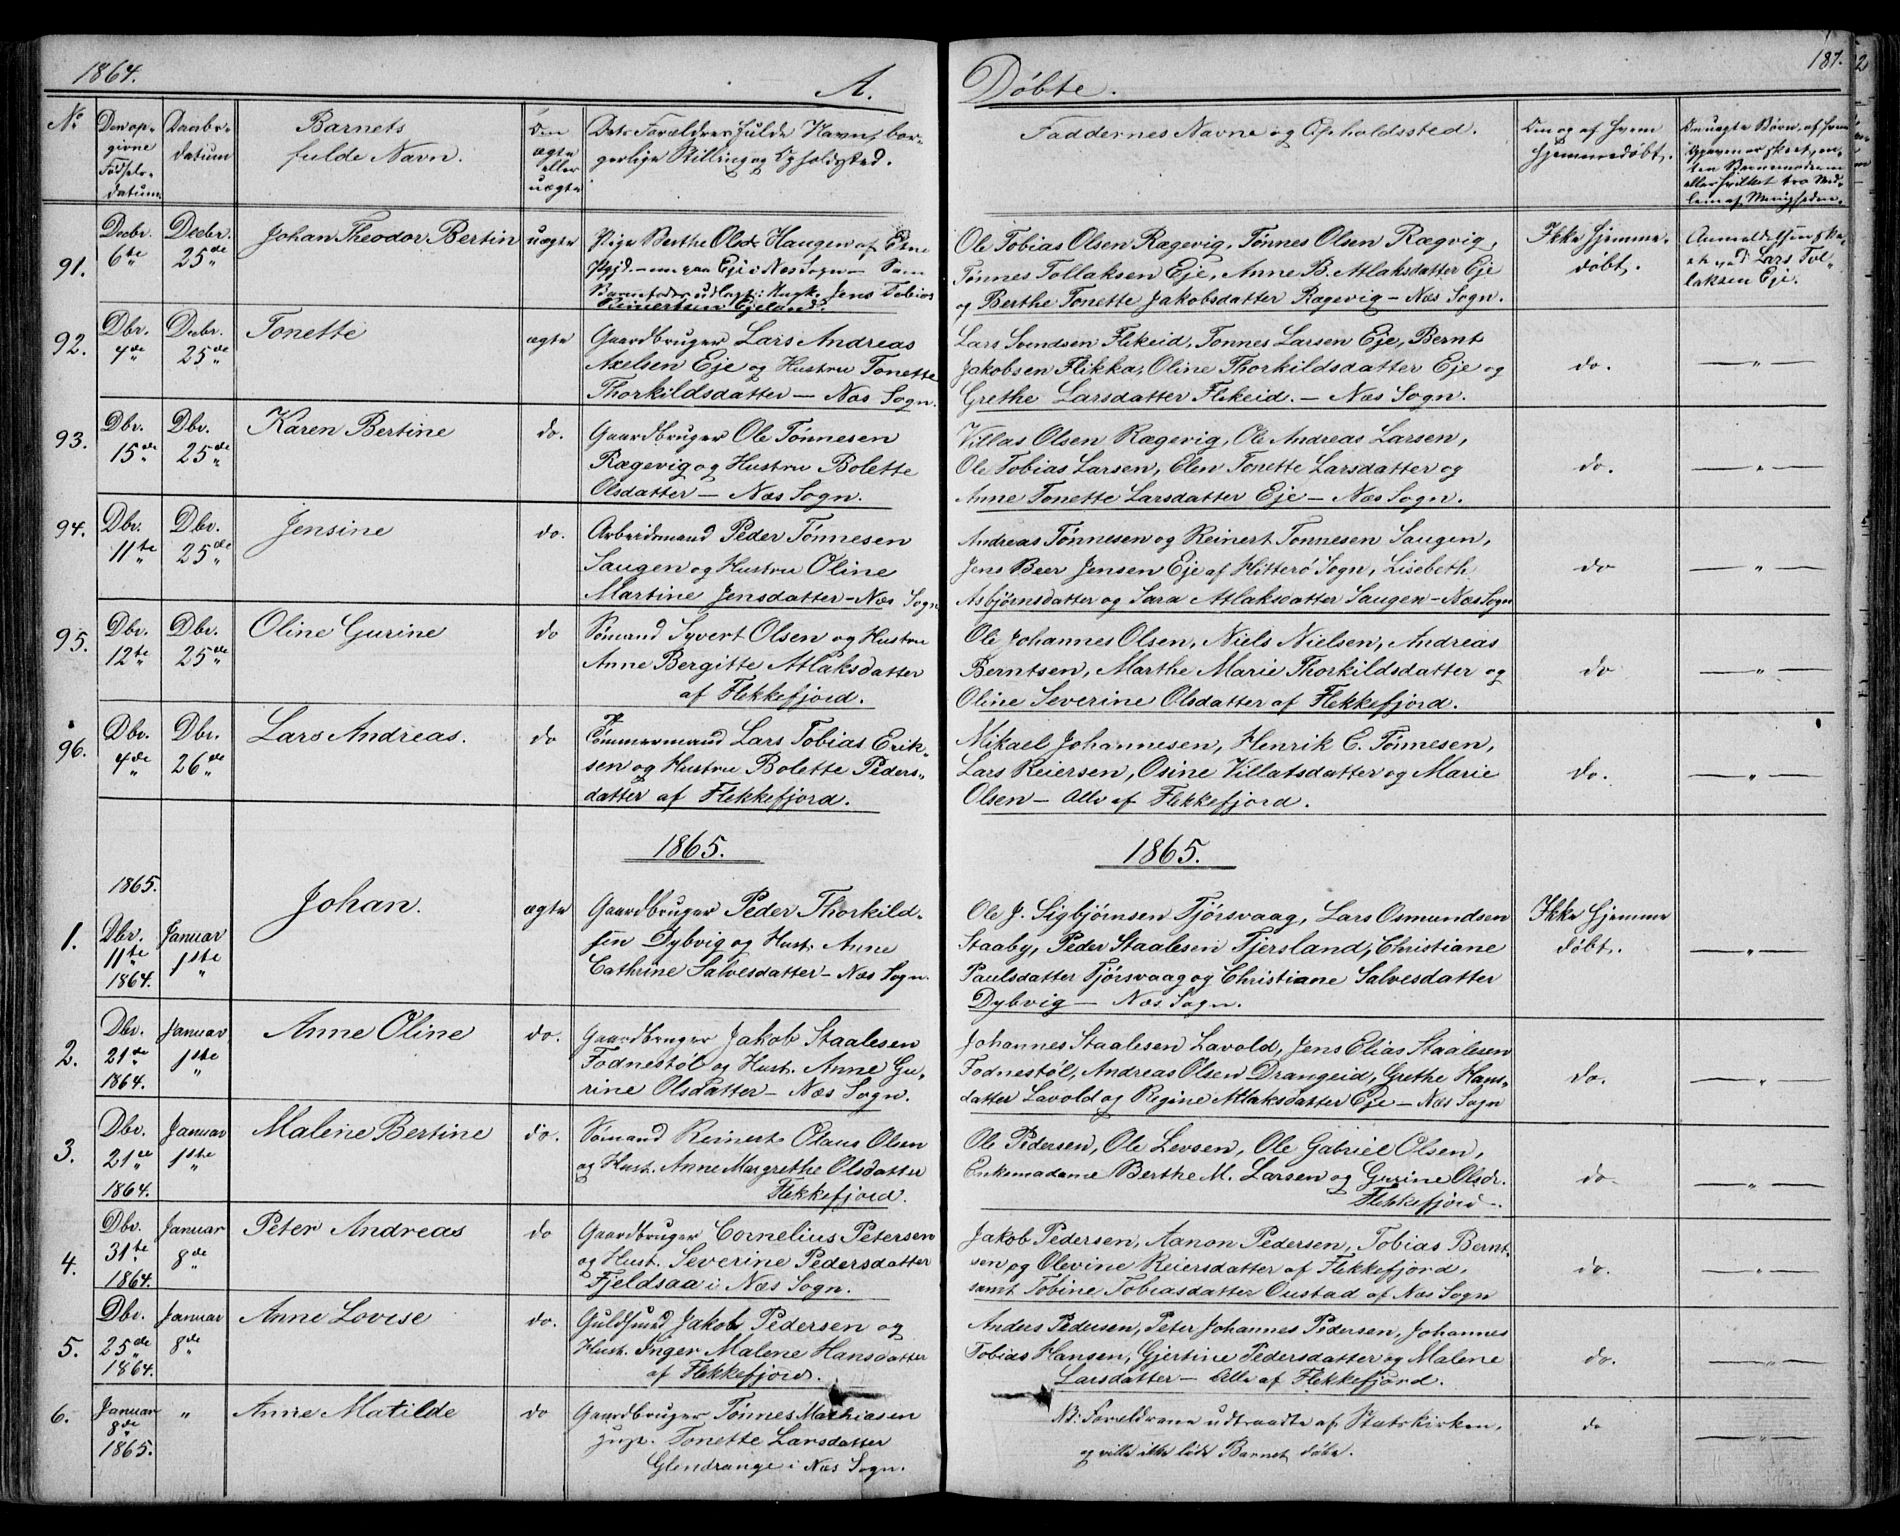 1864.
A.
Døbte.
187.
No
Den op-
givne
Fødsels-
datum
Daabs-
datum
Barnets
fulde Navn.
Om
ægte
eller
uægte
Dets Forældres fulde Navn, bor-
gerlige Stilling og Opholdssted.
Faddernes Navne og Opholdssted.
Om og af hvem
hjemmedøbt.
91.
Decbr. 6te
Decbr. 25de
Johan Theodor Bertin
uægte
Pige Berthe Olsdr Haugen af Etne
Pgjd. – nu paa Eje i Næs Sogn – Som
Barnefader udlagt: Ungk. Jens Tobias
Reinertsen Egeland.
Ole Tobias Olsen Rægevig, Tønnes Olsen Rægvig,
Tønnes Tollaksen Eje, Anne B. Atlaksdatter Eje
og Berthe Tonette Jakobsdatter Rægevig – Næs Sogn.
Ikke hjemme-
døbt.
Anmeldelsen ske-
et ved Lars Tol-
laksen Eje.
92.
Dbr. 4de
Decbr. 25de
Tonette
ægte
Gaardbruger Lars Andreas
Axelsen Eje og Hustru Tonette
Thorkildsdatter – Næs Sogn.
Lars Svendsen Flikeid, Tønnes Larsen Eje, Bernt
Jakobsen Flikka, Oline Thorkildsdatter Eje og
Grethe Larsdatter Flikeid. – Næs Sogn.
do.
– " –
93.
Dbr. 15de
Dbr. 25de
Karen Bertine
do.
Gaardbruger Ole Tønnesen
Rægevig og Hustru Bolette
Olsdatter – Næs Sogn.
Villas Olsen Rægevig, Ole Andreas Larsen,
Ole Tobias Larsen, Elen Tonette Larsdatter og
Anne Tonette Larsdatter Eje – Næs Sogn.
do.
– " –
94.
Dbr. 11te
Dbr. 25de
Jensine
do.
Arbeidsmand Peder Tønnesen
Laugen og Hustru Oline
Martine Jensdatter – Næs Sogn
Andreas Tønnesen og Reinert Tønnesen Laugen,
Jens Beer Jensen Eje af Hitterø Sogn, Lisebeth
Asbjørnsdatter og Sara Atlaksdatter Laugen – Næs Sogn
do
– " –
95.
Dbr. 12te
Dbr. 25de
Oline Gurine
do
Sømand Syvert Olsen og Hustru
Anne Bergitte Atlaksdatter
af Flekkefjord.
Ole Johannes Olsen, Niels Nielsen, Andreas
Berntsen, Marthe Marie Thorkildsdatter og
Oline Severine Olsdatter af Flekkefjord.
do
– " –
96.
Dbr. 4de
Dbr. 26de
Lars Andreas.
do
Tømmermand Lars Tobias Erik-
sen og Hustru Bolette Peders-
datter af Flekkefjord.
Mikael Johannesen, Henrik C. Tønnesen,
Lars Reiersen, Osine Villatsdatter og Marie
Olsen – Alle af Flekkefjord.
do.
– " –
1865.
1865.
1865.
1.
Dbr. 11te 1864.
Januar 1ste
Johan.
ægte
Gaardbruger Peder Thorkild-
sen Dybvig og Hust. Anne
Cathrine Salvesdatter – Næs Sogn.
Ole J. Sigbjørnsen Tjørsvaag, Lars Osmundsen
Staaby, Peder Staalesen Tjersland, Christiane
Paulsdatter Tjørsvaag og Christiane Salvesdatter
Dybvig – Næs Sogn.
Ikke hjemme
døbt.
– " –
2.
Dbr. 21de 1864.
Januar 1ste
Anne Oline
do.
Gaardbruger Jakob Staalesen
Fodnestøl og Hust. Anne Gu-
rine Olsdatter – Næs Sogn.
Johannes Staalesen Lavold, Jens Elias Staalesen
Fodnestøl, Andreas Olsen Drangeid, Grethe Hans-
datter Lavold og Regine Atlaksdatter Eje – Næs Sogn
do.
– " –
3.
Dbr. 21de 1864.
Januar 1ste
Malene Bertine
do.
Sømand Reinert Olaus Olsen
og Hust. Anne Margrethe Olsdatter
Flekkefjord.
Ole Pedersen, Ole Levsen, Ole Gabriel Olsen,
Enkemadame Berthe M. Larsen og Gurine Olsdr.
Flekkefjord –.
do.
– " –
4.
Dbr. 31te 1864.
Januar 8de
Peter Andreas
do
Gaardbruger Cornelius Petersen
og Hust. Severine Pedersdatter
Fjeldsaa i Næs Sogn.
Jakob Pedersen, Aanon Pedersen, Tobias Bernt-
sen og Olevine Reiersdatter af Flekkefjord,
samt Tobine Tobiasdatter Oustad af Næs Sogn
do.
– " –
5.
Dbr. 25de 1864.
Januar 8de
Anne Lovise
do.
Guldsmed Jakob Pedersen og
Hust. Inger Malene Hansdatter
af Flekkefjord.
Anders Pedersen, Peter Johannes Pedersen, Johannes
Tobias Hansen, Gjertine Pedersdatter og Malene
Larsdatter – Alle af Flekkefjord.
do.
– " –
6.
Januar 8de 1865.
"
Anne Matilde
do
Gaardbruger Tønnes Mathiasen
Tonette Larsdatter
Glendrange i Næs Sogn.
NB: Forældrene udtraadte af Statskirken,
og ville ikke lade Barnet døbe.
do
– " –